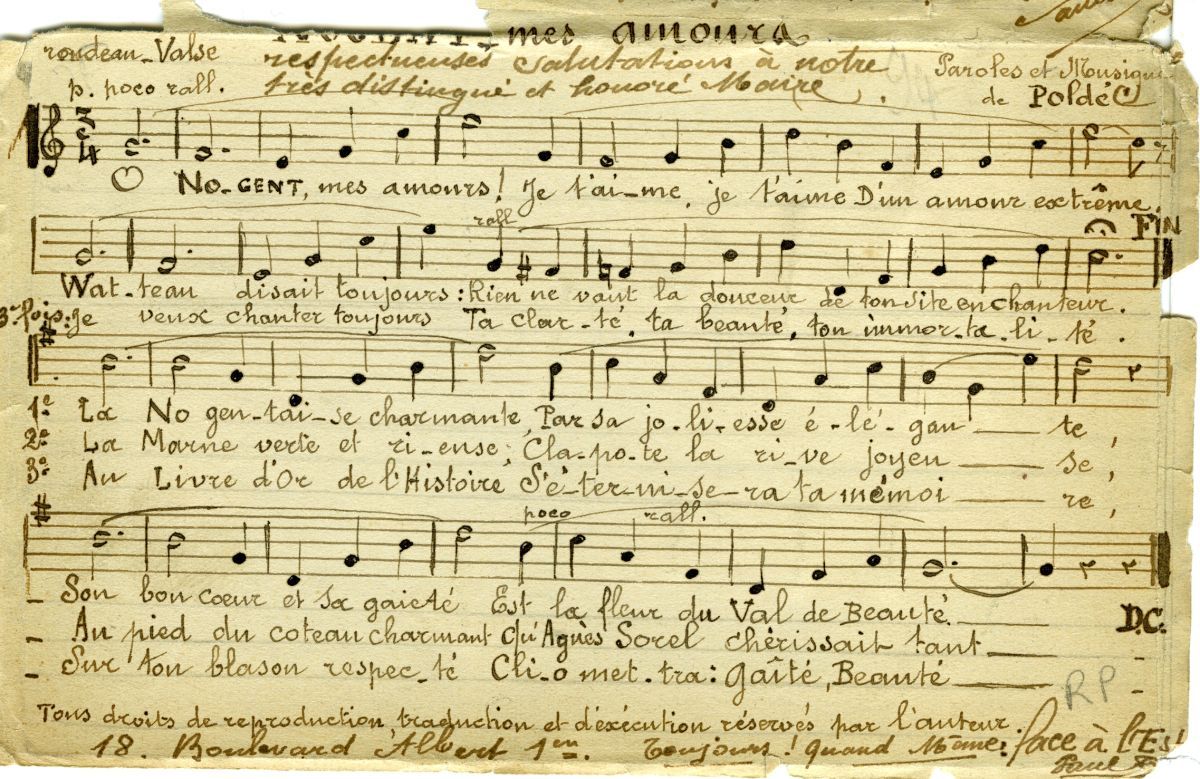 mes amours
rondeau-Valse
respectueuses salutations à notre
Paroles et Musique
p. poco rall.
très distingué et honoré Maire
de POLDÉ
3 4
O NO-GENT, mes amours! Je t'ai-me, je t'aime D'un amour extrême.
rall
FIN
Wat-teau disait toujours: Rien ne vaut la douceur de ton site enchanteur.
3e fois: Je veux chanter toujours Ta clar-té, ta beauté, ton immor-ta-li-té.
1e La No gen-tai-se charmante, Par sa jo-li-esse é-lé-gan — te,
2e La Marne verte et ri-euse, Cla-po-te la ri-ve joyeu — se,
3e Au Livre d'Or de l'Histoire S'é-ter-ni-se-ra ta mémoi — re,
poco rall.
- Son bon cœur et sa gaieté Est la fleur du Val de Beauté. —
D.C.
- Au pied du coteau charmant Qu'Agnès Sorel chérissait tant —
- Sur ton blason respec-té Cli-o met-tra: Gaîté, Beauté —
RP
Tous droits de reproduction, traduction et d'éxécution réservés par l'auteur.
18. Boulevard Albert 1er. Toujours! Quand Même: face à l'Es!
Paul